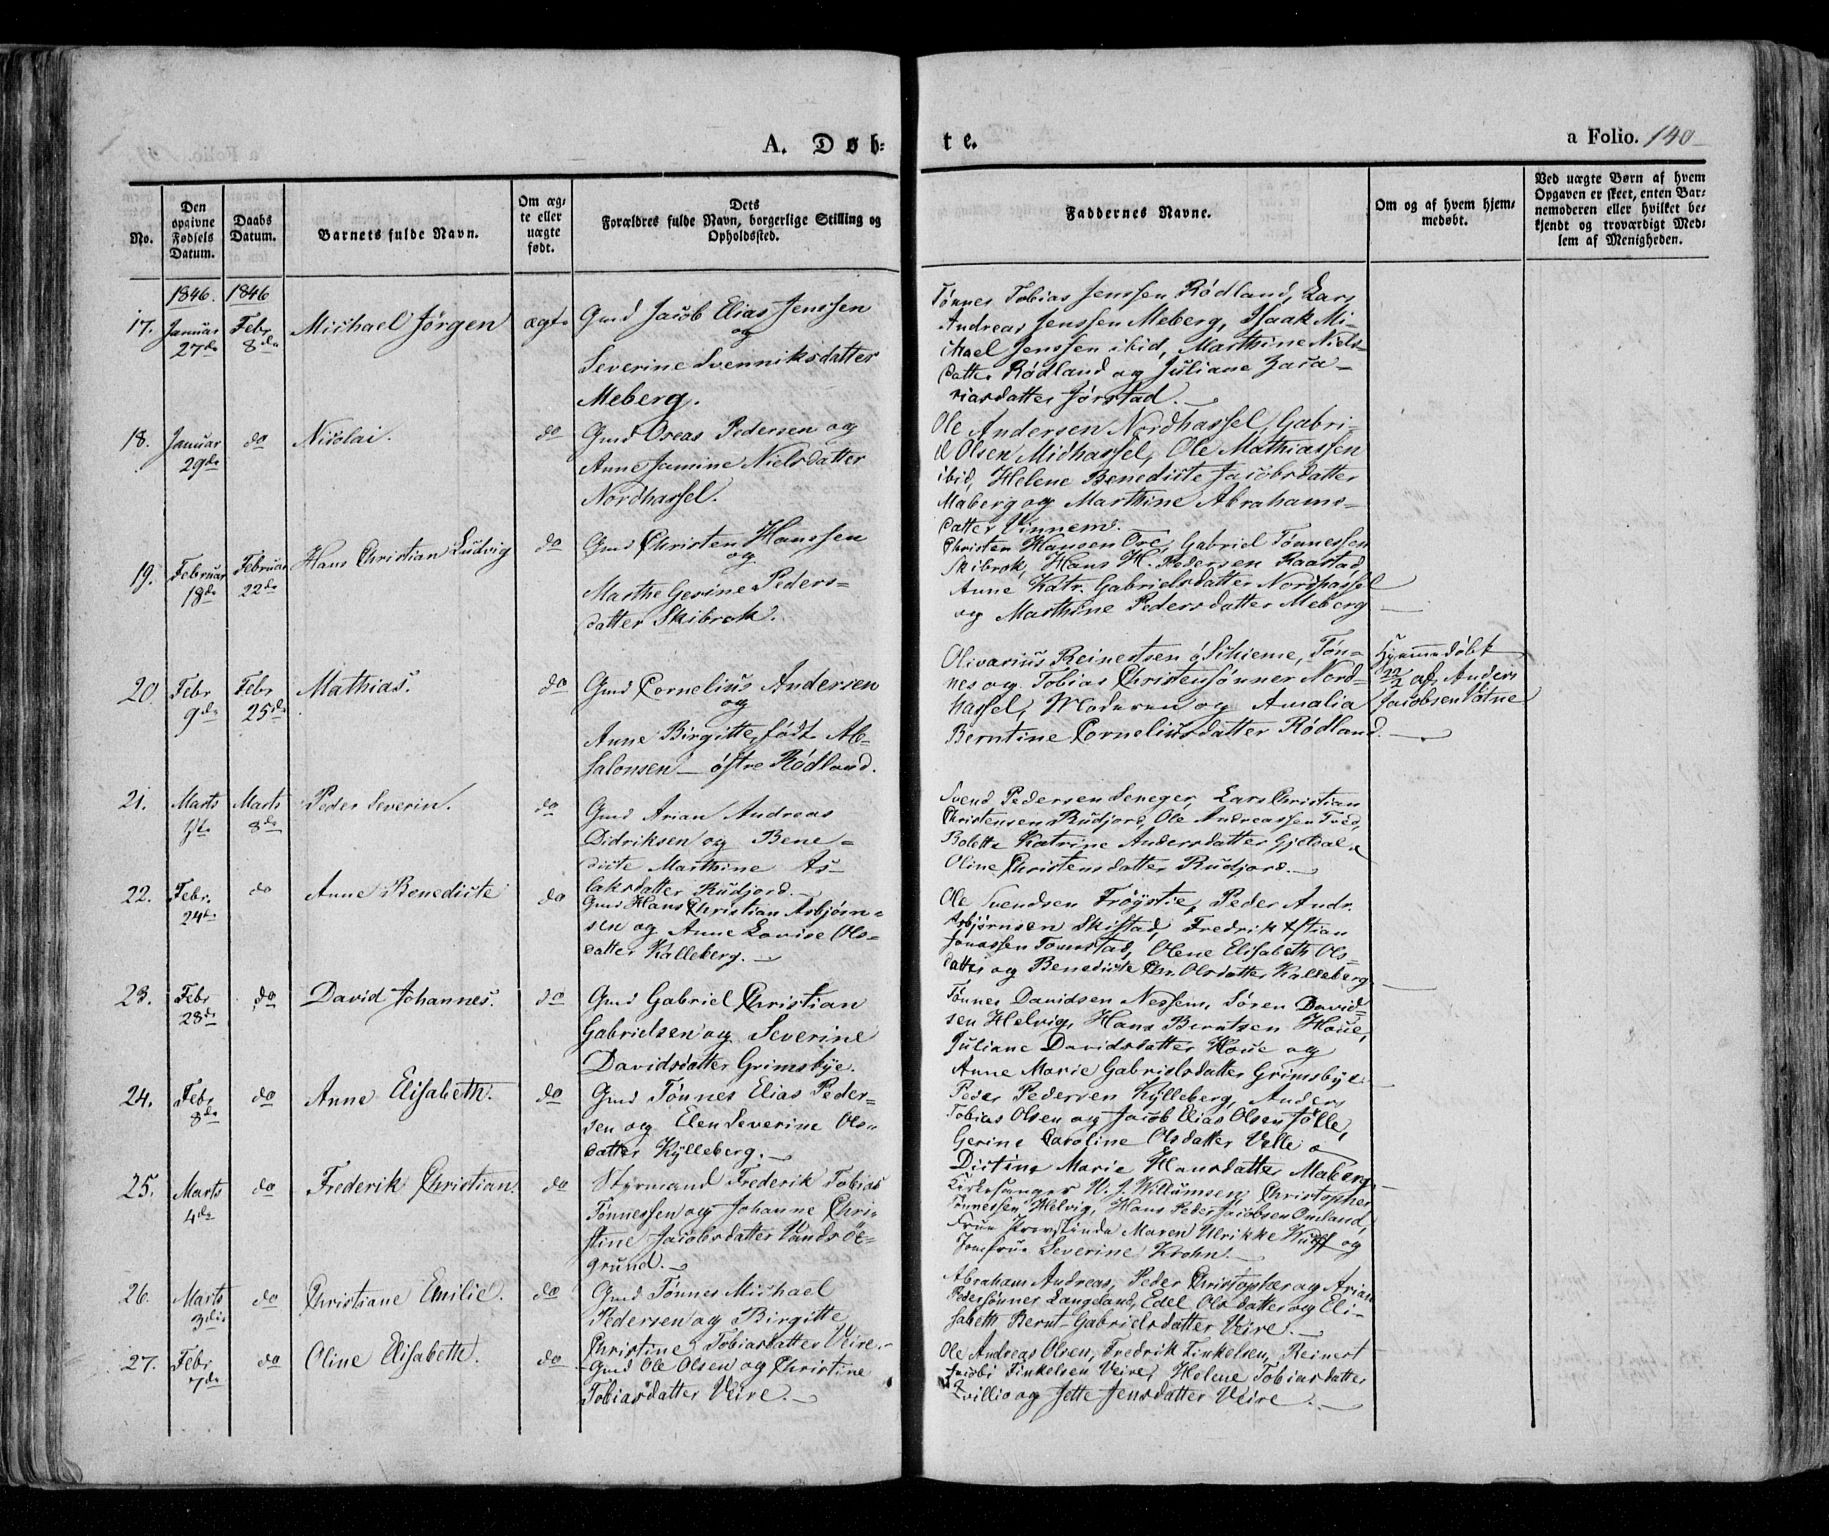 A. Døb-
te.
a Folio. 140
No.
Den
opgivne
Fødsels
Datum.
Daabs
Datum.
Barnets fulde Navn.
Om æg-
te eller
uægte
født.
Dets
Forældres fulde Navn, borgerlige Stilling og
Opholdssted.
Faddernes Navne.
Om og af hvem hjem-
medøbt.
Ved uægte Børn af hvem
Opgaven er skeet, enten Bar-
nemoderen eller hvilket be-
kjendt og troværdigt Med-
lem af Menigheden.
1846. 1846
17. Januar Febr Michael Jørgen ægte
27de 8de
Gmd Jacob Elias Jenssen
og
Severine Svenniksdatter
Meberg.
Tønnes Tobias Jenssen Rødland, Lars
Andreas Jenssen Meberg, Isaak Mi-
chael Jenssen ibid, Marthine Niels-
datter Rødland og Juliane Zaca-
riasdatter Jørstad.
18. Januar do Nicolai. do
29de
Gmd Oseas Pedersen og
Anne Jamine Nielsdatter
Nordhassel.
Ole Andersen Nordhassel, Gabri-
el Olsen Midhassel, Ole Mathiassen
ibid, Helene Benedicte Jacobsdatter
Maberg og Marthine Abrahams-
datter Vinnem.
19. Februar Februar Hans Christian Ludvig do
18de 22de
Gmd Christen Hanssen
og
Marthe Gerine Peders-
datter Skibrok.
Christen Hansen Ore, Gabriel Tønnessen
Skibrok, Hans H. Pedersen Raastad,
Anne Katr. Gabrielsdatter Nordhassel
og Marthine Pedersdatter Meberg
20 Febr Febr Mathias. do
9de 25de
Gmd Cornelius Andersen
og
Anne Birgitte, født Ab-
salonsen - østre Rødland.
Olivarius Reinertsen ø Schieme, Tøn-
nes og Tobias Christensønner Nord-
hassel, Moderen og Amalia
Berntine Corneliusdatter Rødland.
Hjemmedøbt
22/2 af Anders
Jacobsen Vatne
21. Marts Marts Peder Severin. do
8de
Gmd Arian Andreas
Didriksen og Bene-
dicte Marthine As-
laksdatter Rudjord.
Svend Pedersen Seneger, Lars Christian
Christensen Rudjord, Ole Andreassen
Bolette Katrine Andersdatter Gjeldal &
Oline Christensdatter Rudjord.
22. Febr. do Anne Benedicte do
24de
Gmd Hans Christian Asbjørn-
sen og Anne Lovise Ols-
datter Kalleberg.
Ole Svendsen Frøystie, Peder Andr.
Asbjørnsen Skistad, Fredrik
Jonassen Tomstad, Olene Elisabeth Ols-
datter og Benedicte Chr. Olsdatter Kalleberg
23. Febr do David Johannes. do
28de
Gmd Gabriel Christian
Gabrielsen og Severine
Davidsdatter Grimsbye.
Tønnes Davidsen Nessem, Søren David-
sen Helvig, Hans Berntsen Houe,
Juliane Davidsdatter Houe og
Anne Marie Gabrielsdatter Grimsbye
24. Febr do Anne Elisabeth. do
8de
Gmd Tønnes Elias Peder-
sen og Elen Severine Ols-
datter Kylleberg.
Peder Pedersen Kylleberg, Anders
Tobias Olsen og Jacob Elias Olsen Jølle,
Gerine Caroline Olsdatter Velle &
Distine Marie Hansdatter Maberg
25. Marts do Frederik Christian. do
4de
Styrmand Frederik Tobias
Tønnessen og Johanne Chri-
stine Jacobsdatter Vandsøe-
grund.
Kirkesanger N. J. Willumsen, Christopher
Tønnessen Helvig, Hans Peder Jacobsen Omland,
Frue Provstinde Maren Ulrikke Wulff og
Jomfrue Severine Krohn.
26. Marts do Christiane Emilie. do
3die
Gmd Tønnes Michael
Pedersen og Birgitte
Christine Tobiasdatter Veire.
Abraham Andreas, Peder Christopher og Arian
Pedersønner Langeland, Edel Olsdatter og Eli-
sabeth Bernt-Gabrielsdatter Veire.
27. Febr do Oline Elisabeth. do
7de
Gmd Ole Olsen og Christine
Tobiasdatter Veire.
Ole Andreas Olsen, Fredrik Finkelsen, Reinert
Jacobi Finkelsen Veire, Helene Tobiasdatter
og Jette Jensdatter Veire.